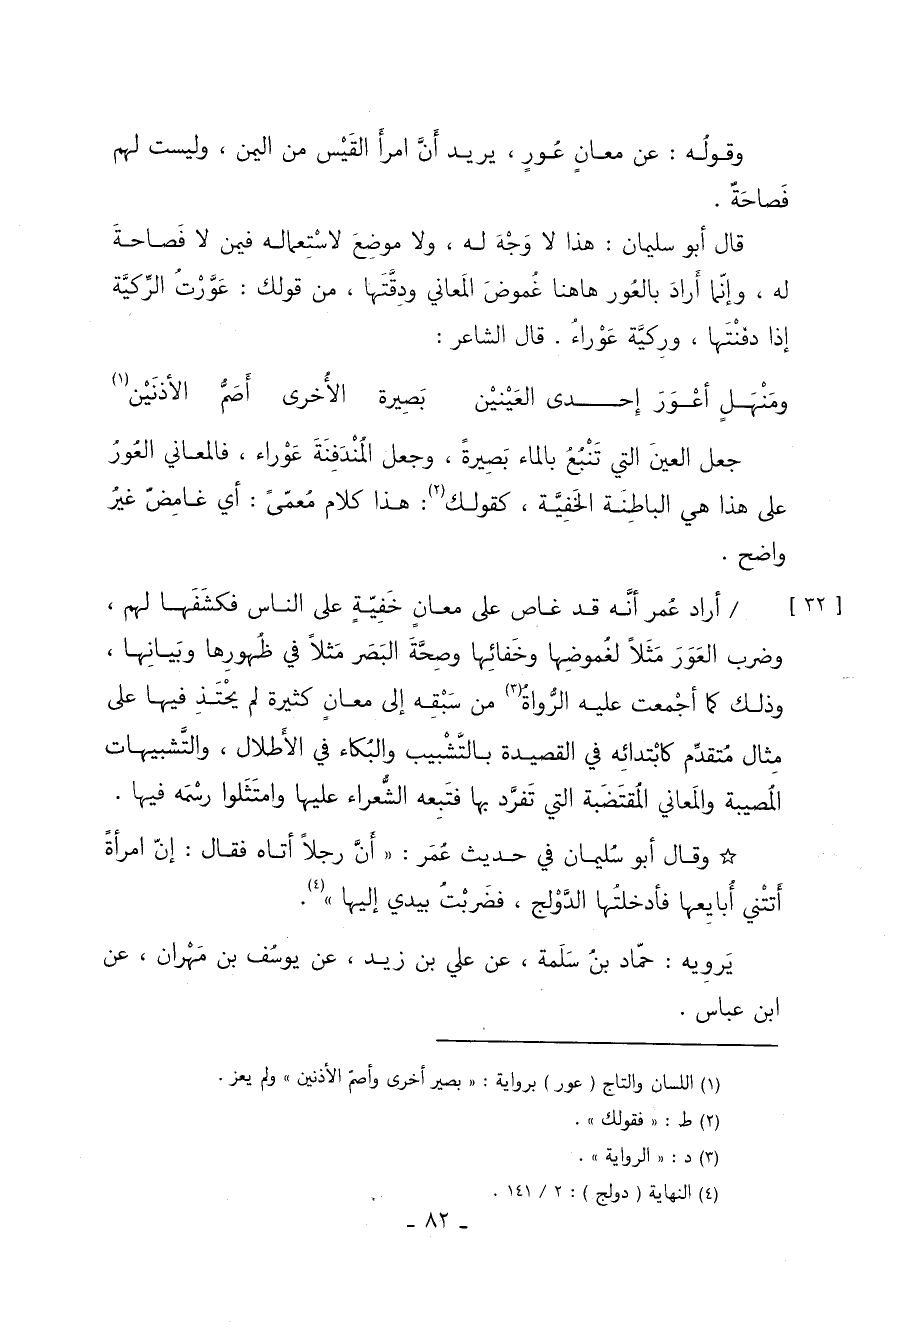 وقولُه : عن معانٍ عُورٍ ، يريد أنَّ امرأَ القَيْس من اليمن ، وليست لهم
فَصاحَةٌ .
قال أبو سليمان : هذا لا وَجْهَ له ، ولا موضعَ لاسْتعماله فيمن لا فَصاحةَ
له ، وإنّما أرادَ بالعُور هاهنا غُموضَ المعاني ودقَّتَها ، من قولك : عَوَّرْتُ الرَّكيَّة
إذا دفنْتَها ، وركيَّة عَوْراءُ . قال الشاعر :
ومَنْهَلٍ أعْوَرَ إحدى العَيْنيْن بَصيرة الأُخرى أَصَمُّ الأذنَيْن(١)
جعل العينَ التي تَنْبُعُ بالماء بَصيرةً ، وجعل المُنْدَفِنَةَ عَوْراء ، فالمعاني العُورُ
على هذا هي الباطِنَة الخفيَّة ، كقولك(٢): هذا كلام مُعمّىً : أي غامضٌ غيرُ
واضح .
[ ٣٢ ] / أراد عُمر أنَّه قد غاص على معانٍ خَفِيّةٍ على الناس فكشَفَها لهم ،
وضرب العَوَرَ مَثَلاً لغُموضها وخَفائها وصحَّةَ البَصَر مَثلاً في ظُهورها وبَيانها ،
وذلك كما أجْمعت عليه الرُّواةُ(٣) من سَبْقه إلى معانٍ كثيرة لم يحْتَذ فيها على
مثال مُتقدِّم كابْتدائه في القصيدة بالتَّشْبيب والبُكاء في الأَطلال ، والتَّشبيهات
المُصيبة والمَعاني المُقتَضَبة التي تَفرَّد بها فتَبعه الشُّعراء عليها وامتَثَلوا رسْمَه فيها .
☆ وقال أبو سُليمان في حديث عُمَر : « أنَّ رجلاً أتاه فقال : إنّ امرأةً
أتتْني أُبايعها فأدخلتُها الدَّوْلج ، فضَربْتُ بيدي إليها »(٤).
يَرويه : حمَّاد بنُ سَلَمة ، عن علي بن زيد ، عن يوسُف بن مهْران ، عن
ابن عباس .
(١) اللسان والتاج ( عور ) برواية : « بصير أخرى وأصمّ الأذنين » ولم يعز .
(٢) ط : « فقولك » .
(٣) د : « الرواية » .
(٤) النهاية ( دولج ) : ٢ / ١٤١ .
- ٨٢ -